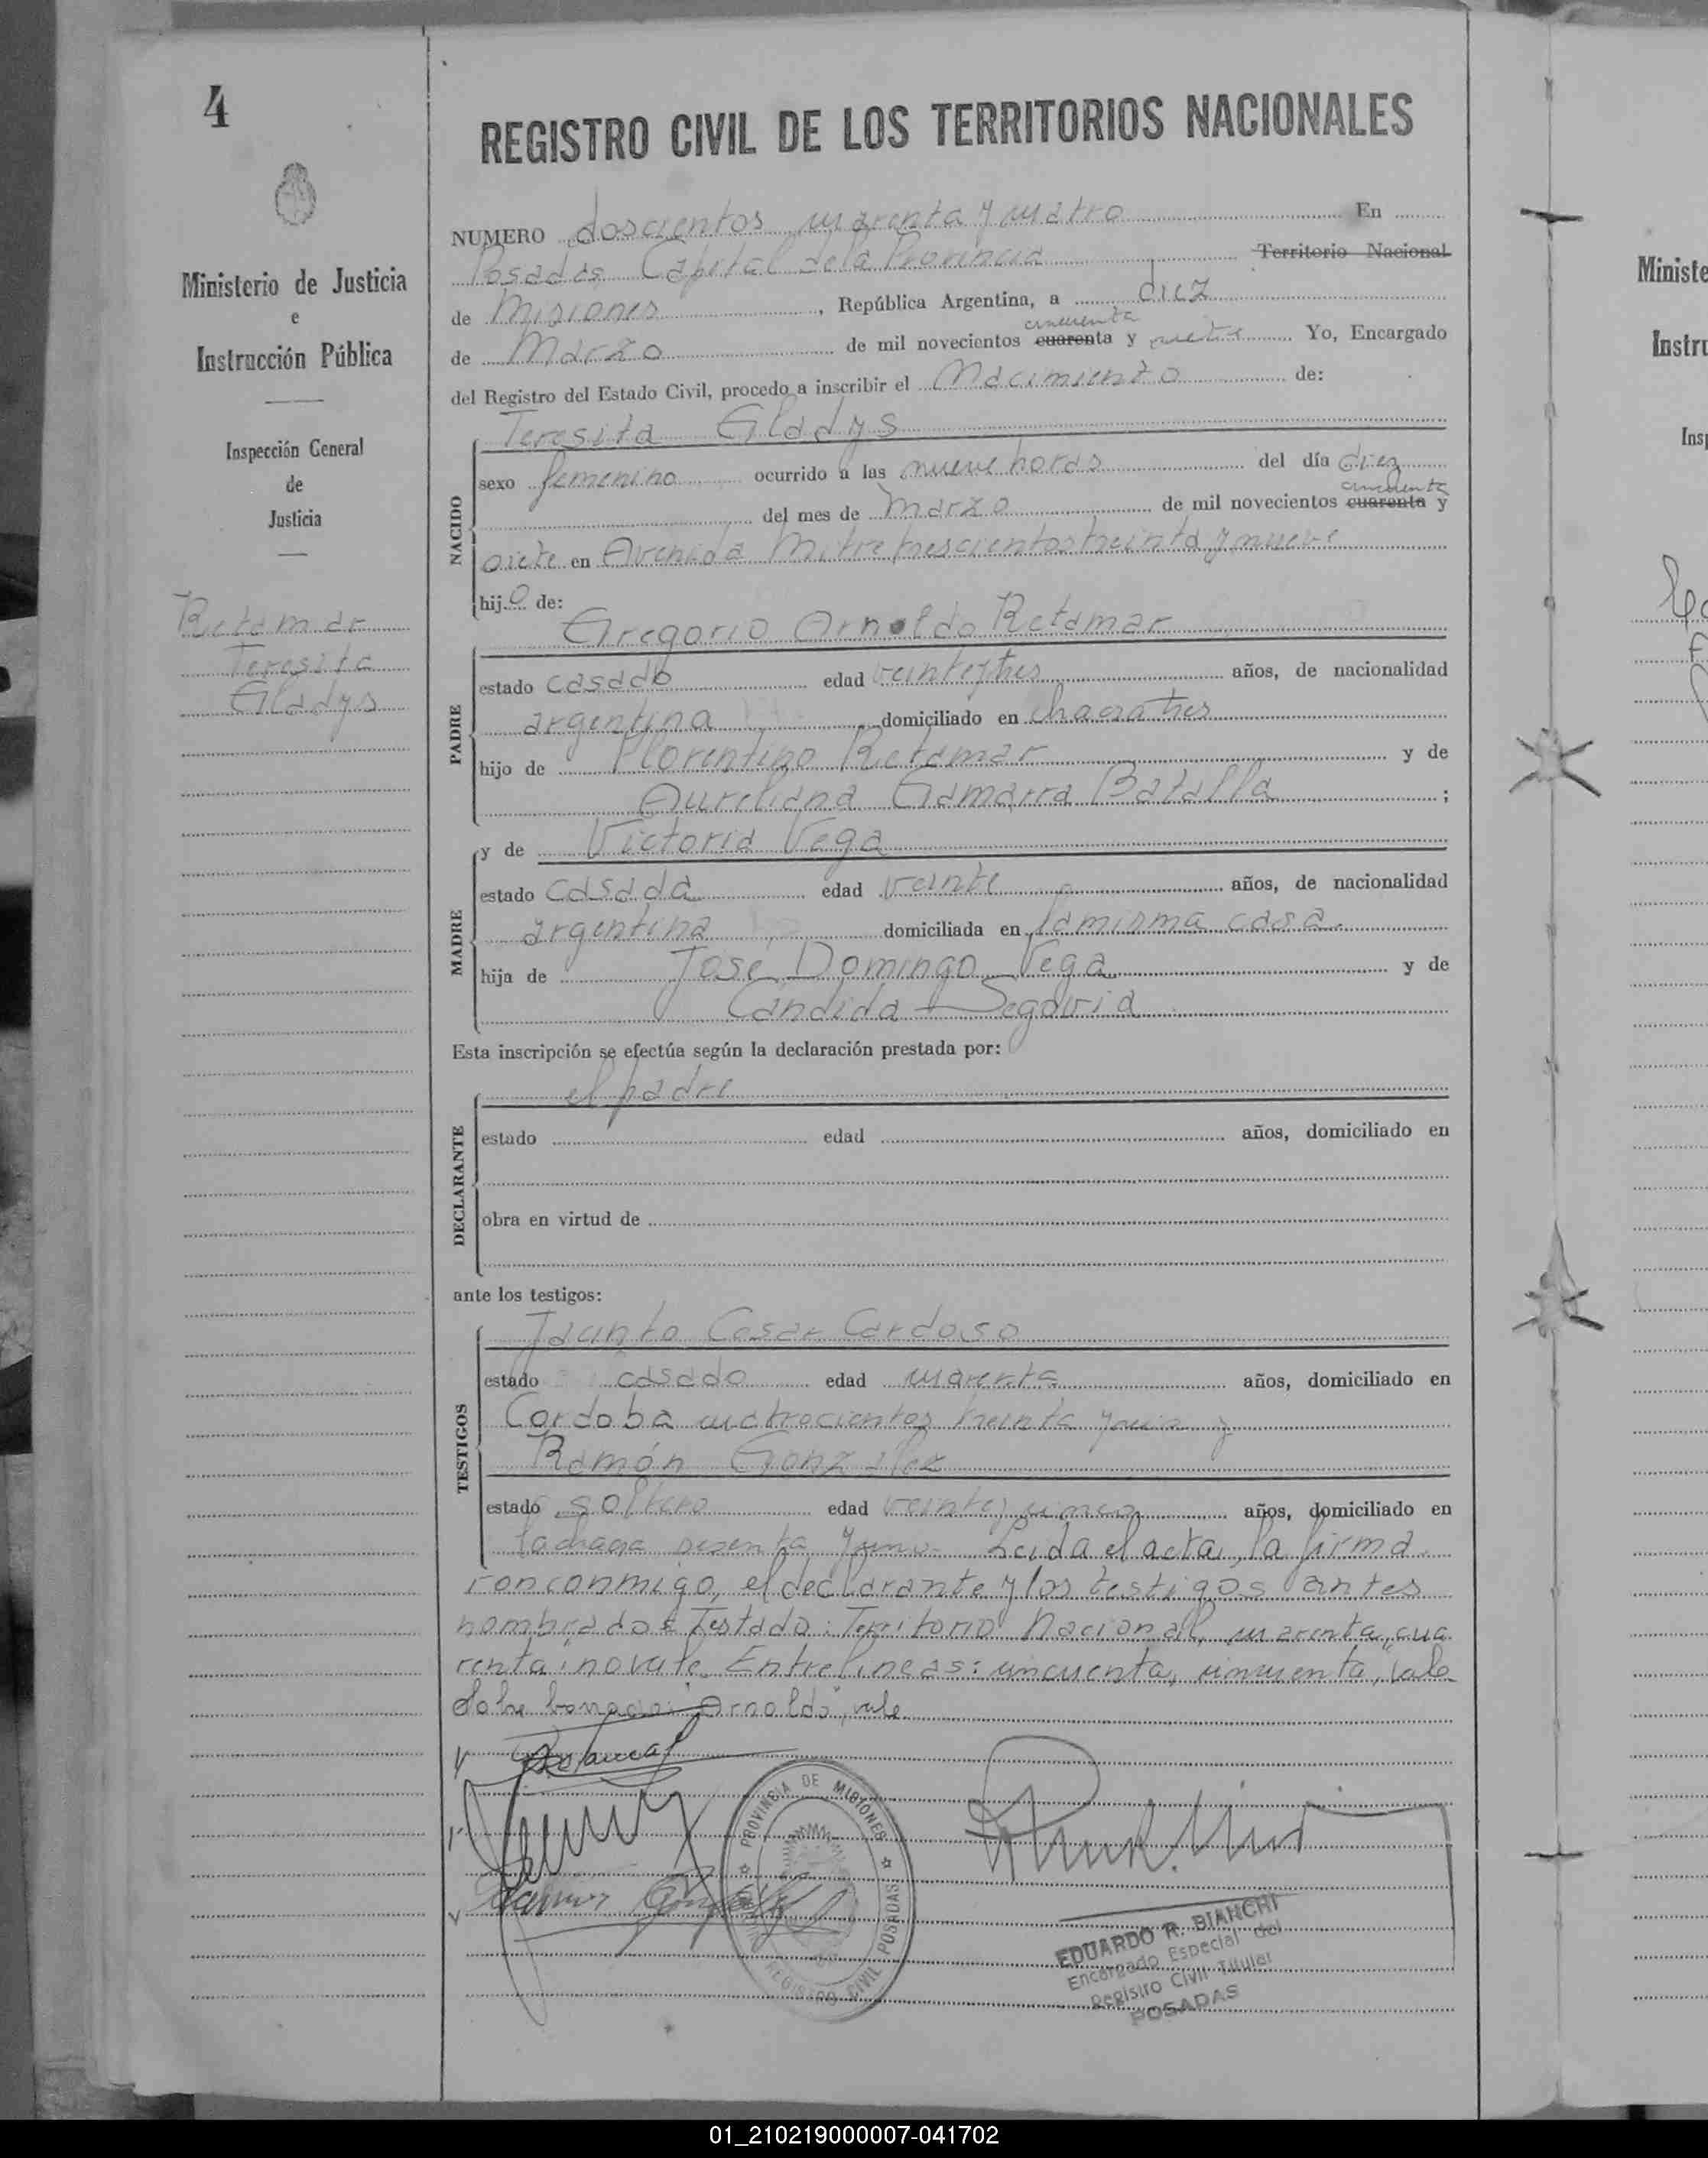 4
REGISTRO CIVIL DE LOS TERRITORIOS NACIONALES
NUMERO doscientos cuarenta y cuatro En
Posadas Capital de la Provincia Territorio Nacional
de Misiones, República Argentina, a diez
cincuenta
de Marzo de mil novecientos cuarenta y siete Yo, Encargado
del Registro del Estado Civil, procedo a inscribir el Nacimiento de:
Ministerio de Justicia
e
Instrucción Pública
Inspección General
de
Justicia
Retamar
Teresita
Gladys
NACIDO
Teresita Gladys
sexo femenino ocurrido a las nueve horas del día diez
cincuenta
del mes de Marzo de mil novecientos cuarenta y
siete en Avenida Mitre trescientos treinta y nueve
hijo de:
PADRE
Gregorio Arnoldo Retamar
estado casado edad veintey tres años, de nacionalidad
argentina domiciliado en chacra tres
hijo de Florentino Retamar y de
Aureliana Gamarra Batalla;
MADRE
y de Victoria Vega
estado casada edad veinte años, de nacionalidad
argentina domiciliada en la misma casa.
hija de Jose Domingo Vega y de
Candida Segovia
Esta inscripción se efectúa según la declaración prestada por:
DECLARANTE
el padre
estado edad años, domiciliado en
obra en virtud de
ante los testigos:
TESTIGOS
Jacinto Cesar Cardoso
estado casado edad cuarenta años, domiciliado en
Cordoba cuatrocientos treinta y
Ramón Gonzalez
estado soltero edad veintey cinco años, domiciliado en
la chacra sesenta y uno - Leida el acta, la firma
ron conmigo, el declarante y los testigos antes
nombrados Testado: Territorio Nacional, cuarenta, cua
renta: no vale. Entrelineas: cincuenta, cincuenta, vale
Sobre borrado: "Arnoldo", vale
Retamar
Ramon Gonzalez
PROVINCIA DE MISIONES
REGISTRO CIVIL POSADAS
EDUARDO R. BIANCHI
Encargado Especial del
Registro Civil Titular
POSADAS
Ministe
Instru
Insp
01_210219000007-041702